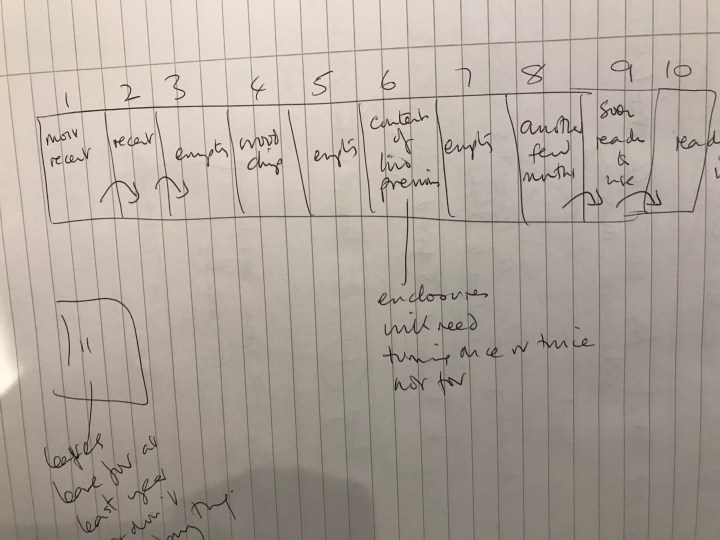 1 2 3 4 5 6 7 8 9 10
more
recent
recent
empty
wood
chip
empty
content
of
two
previous
empty
another
few
months
soon
ready
to
use
read
enclosures
will need
turning once or twice
11
leaves
leave for at
least year